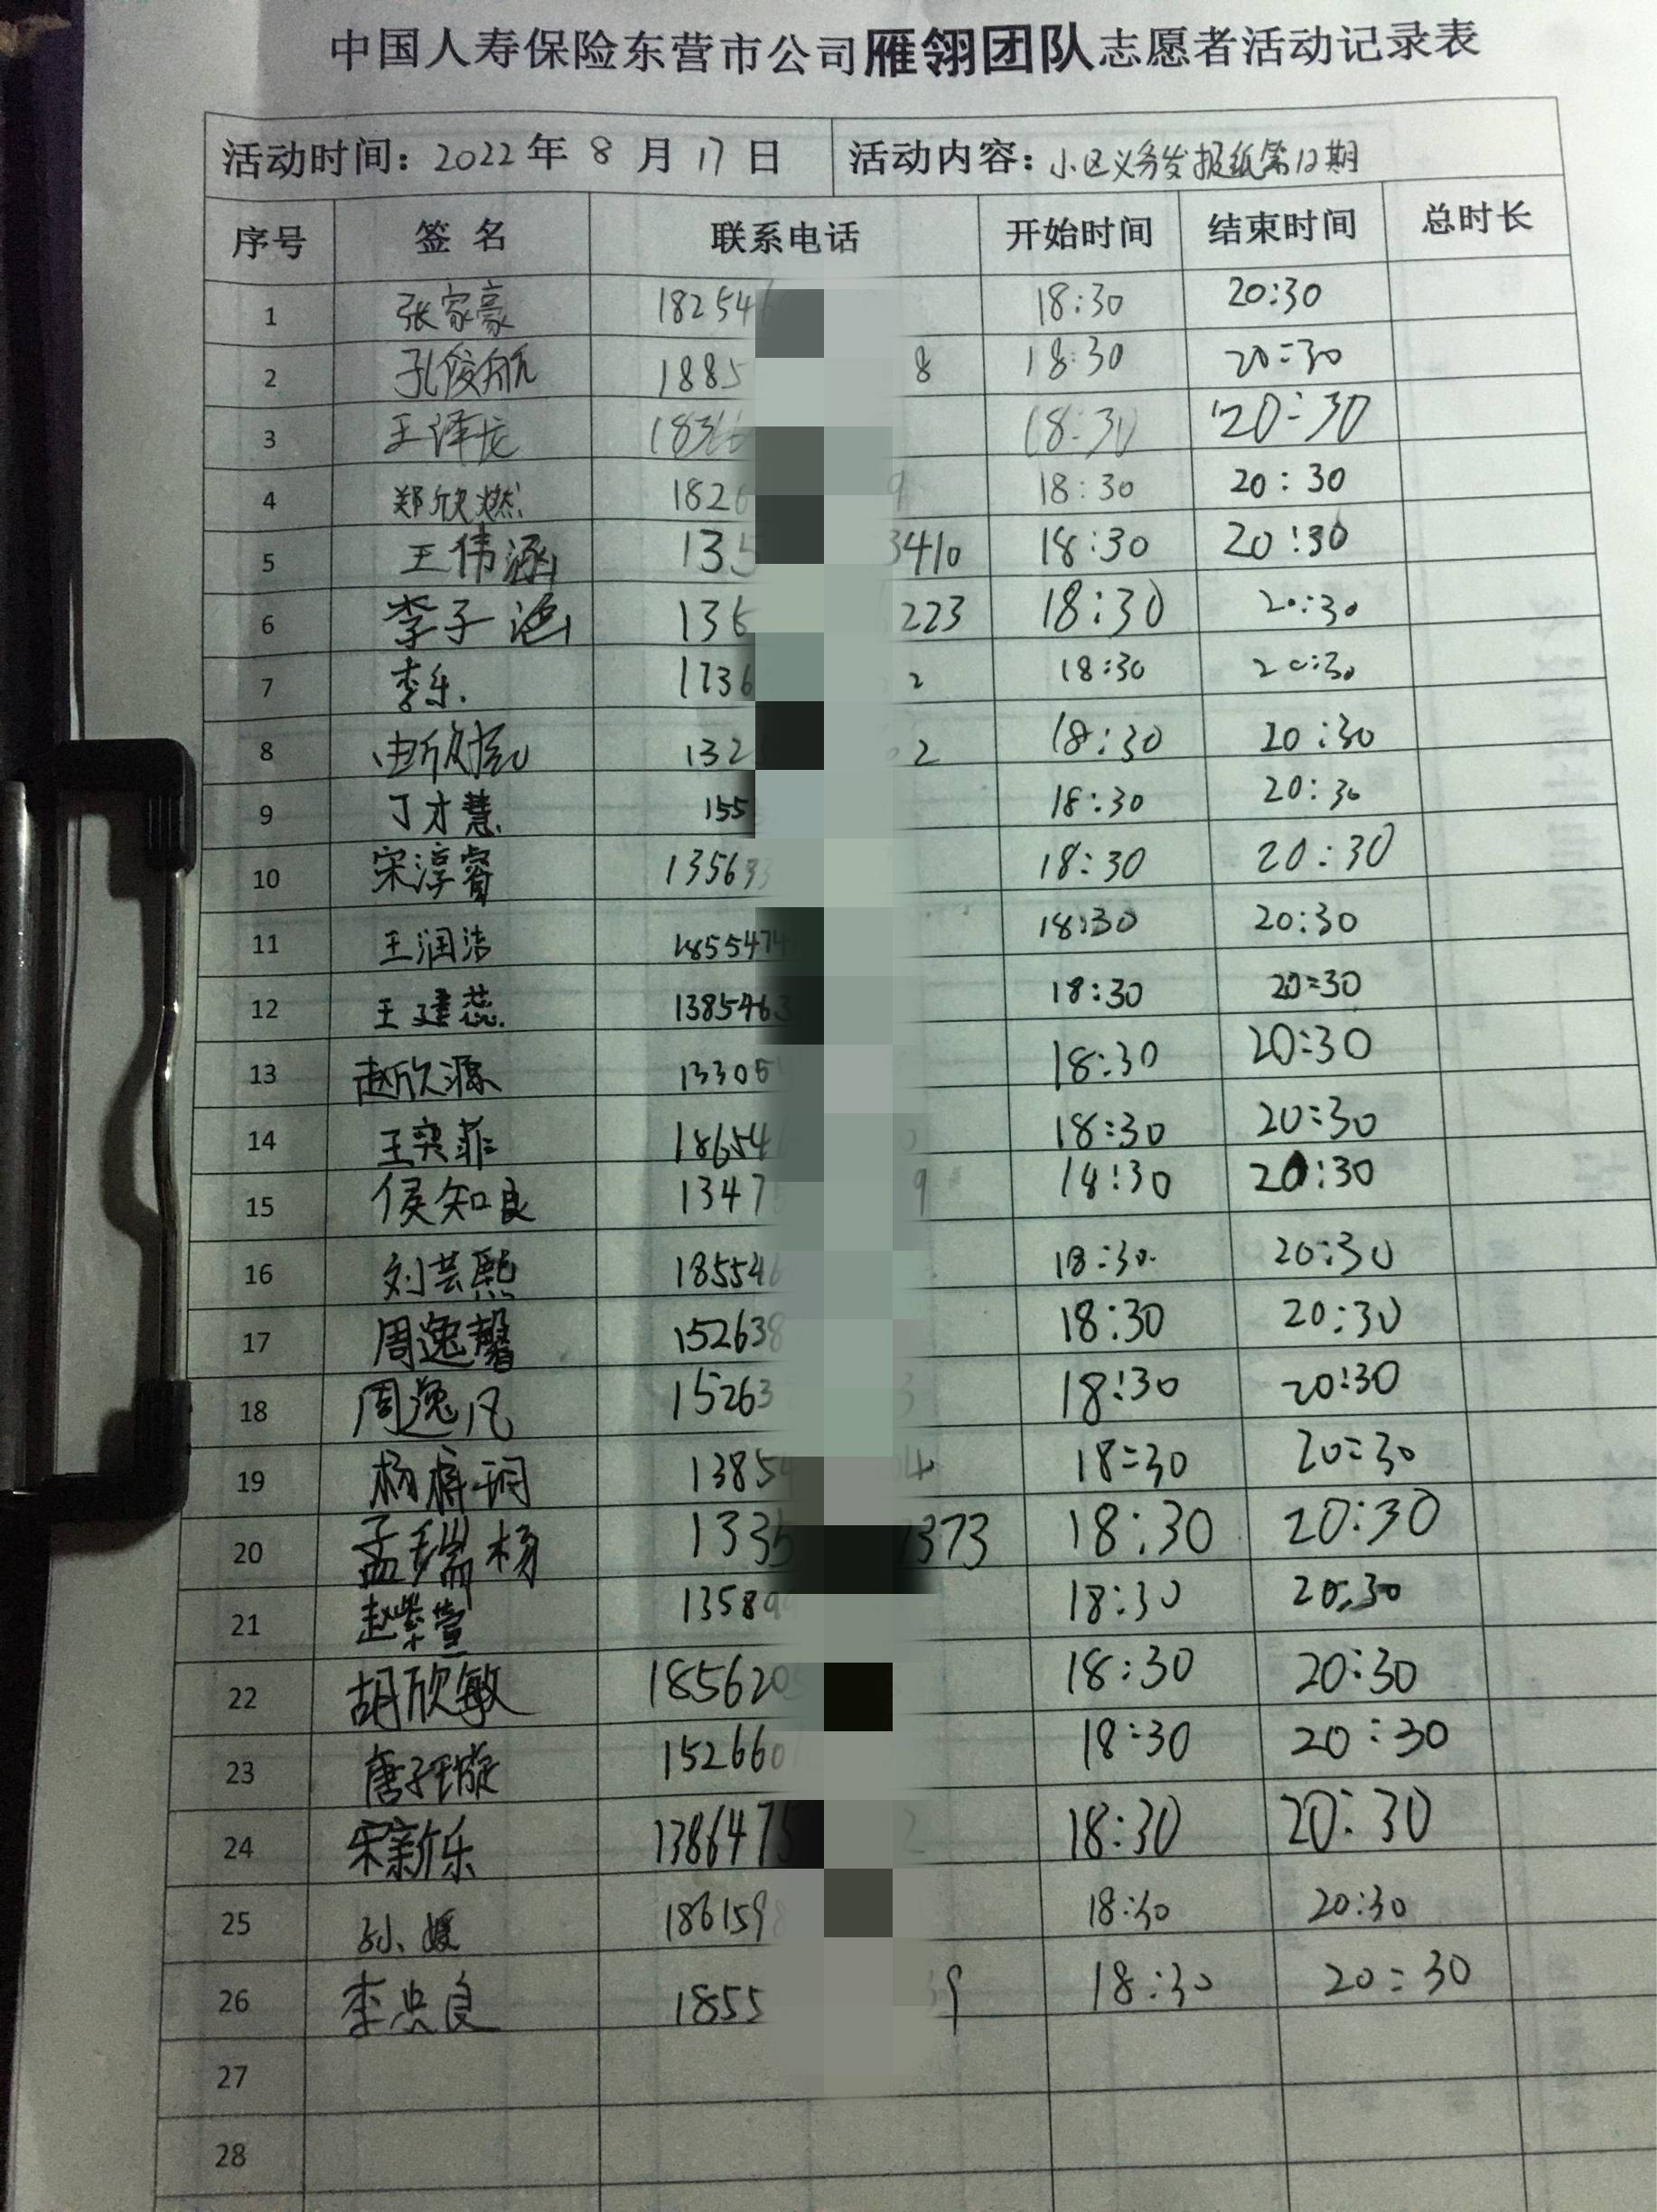 中国人寿保险东营市公司雁翎团队志愿者活动记录表
活动时间：2022年8月17日 活动内容：小区义务发报纸第12期
序号 签名 联系电话 开始时间 结束时间 总时长
1 张家豪 18254 18:30 20:30
2 孔俊航 1885 8 18:30 20:30
3 王泽龙 1836 18:30 20:30
4 郑欣燃 1826 9 18:30 20:30
5 王伟涵 135 3410 18:30 20:30
6 李子涵 136 223 18:30 20:30
7 李乐 1736 2 18:30 20:30
8 132 2 18:30 20:30
9 丁才慧 155 18:30 20:30
10 宋淳睿 13563 18:30 20:30
11 王润洁 1855474 18:30 20:30
12 王建蕊 1385463 18:30 20:30
13 赵欣源 13305 18:30 20:30
14 王奕菲 18654 18:30 20:30
15 侯知良 1347 9 18:30 20:30
16 刘芸熙 18554 18:30 20:30
17 周逸馨 152638 18:30 20:30
18 周逸凡 15263 18:30 20:30
19 杨梓玥 1385 4 18:30 20:30
20 孟瑞杨 1335 373 18:30 20:30
21 赵紫萱 1358 18:30 20:30
22 胡欣敏 185620 18:30 20:30
23 唐子璇 152660 18:30 20:30
24 宋新乐 1386475 2 18:30 20:30
25 孙媛 186159 18:30 20:30
26 李忠良 1855 39 18:30 20:30
27
28